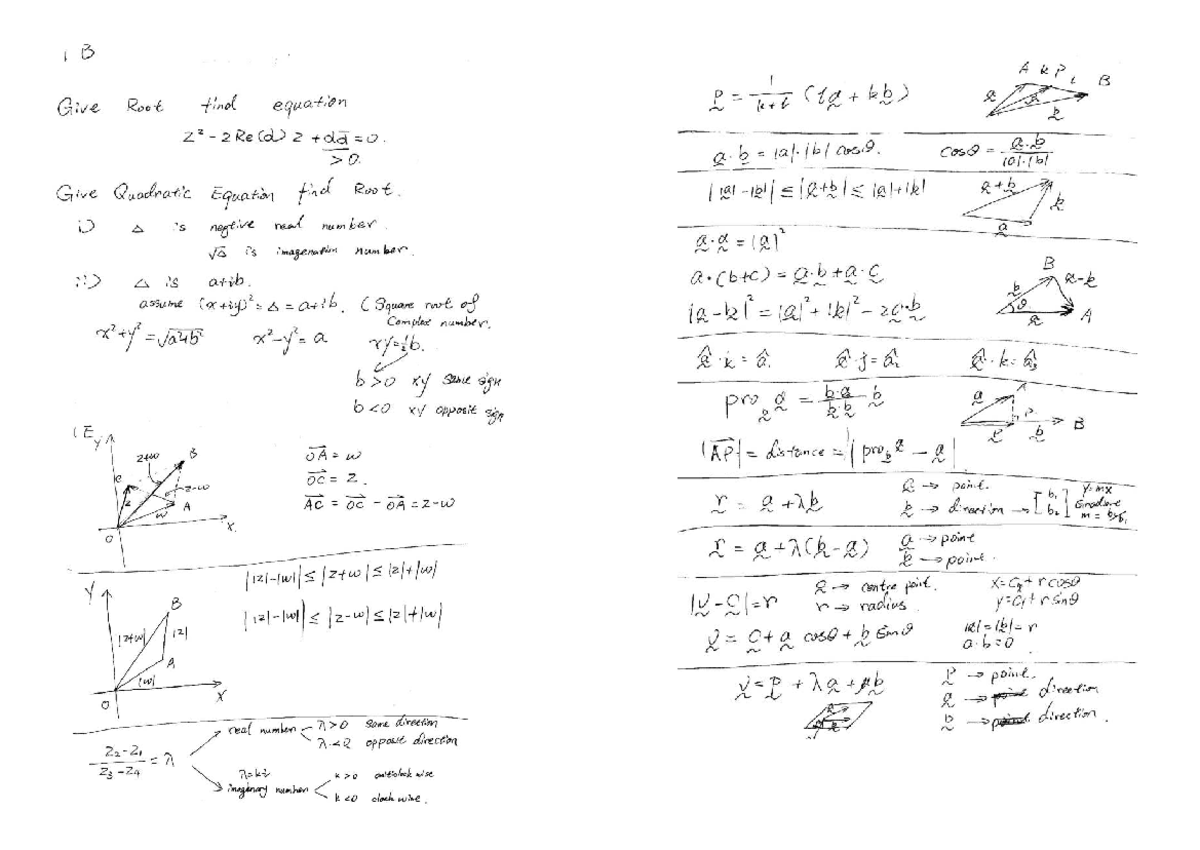 1 B
Give Root find equation
z² - 2Re(α) z + αᾱ = 0.
> 0.
Give Quadratic Equation find Root.
i) Δ is negtive real number.
√Δ is imagenation number.
ii) Δ is a+ib.
assume (x+iy)² = Δ = a+ib. ( Square root of
Complex number.
x²+y² = √a²+b² x²-y² = a xy = ½b.
b>0 xy same sign
b<0 xy opposit sign
1E
Y
z+w
B
C
z-w
z
A
w
O
X
OA = w
OC = z.
AC = OC - OA = z-w
| |z|-|w| | ≤ |z+w| ≤ |z|+|w|
| |z|-|w| | ≤ |z-w| ≤ |z|+|w|
Y
B
|z+w|
|z|
A
|w|
O
X
z₂-z₁ / z₃-z₄ = λ
real number
λ>0 same direction
λ<0 opposit direction
λ=ki
imaginary number
k>0 anticlock wise
k<0 clock wise.
p = 1/(k+l) (la + kb)
A k P l B
a p b
a·b = |a|·|b| cosθ. cosθ = a·b / |a|·|b|
| |a|-|b| | ≤ |a+b| ≤ |a|+|b|
a+b
b
a
a·a = |a|²
a·(b+c) = a·b + a·c
|a-b|² = |a|² + |b|² - 2a·b
B
a-b
b
θ
a
A
a·i = a₁ a·j = a₂ a·k = a₃
proj_b a = b·a / b·b b
a A
P
p b B
|AP| = distance = | pro_b a - a |
r = a + λb
a → point.
b → direction → [b₁ b₂] y=mx
Gradient
m = b₂/b₁
r = a + λ(b-a)
a → point
b → point.
|v - c| = r
c → centre point.
r → radius.
x = c₁ + r cosθ
y = c₂ + r sinθ
v = c + a cosθ + b sinθ
|a| = |b| = r
a·b = 0
v = p + λa + μb
p → point.
a → direction
b → direction.